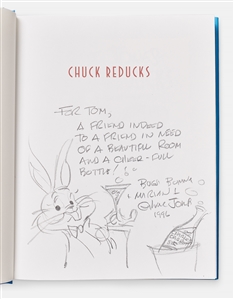 CHUCK REDUCKS
FOR TOM,
A FRIEND INDEED
TO A FRIEND IN NEED
OF A BEAUTIFUL ROOM
AND A CHEER-FULL
BOTTLE!
BUGS BUNNY
MARIAN &
Chuck Jones
1996